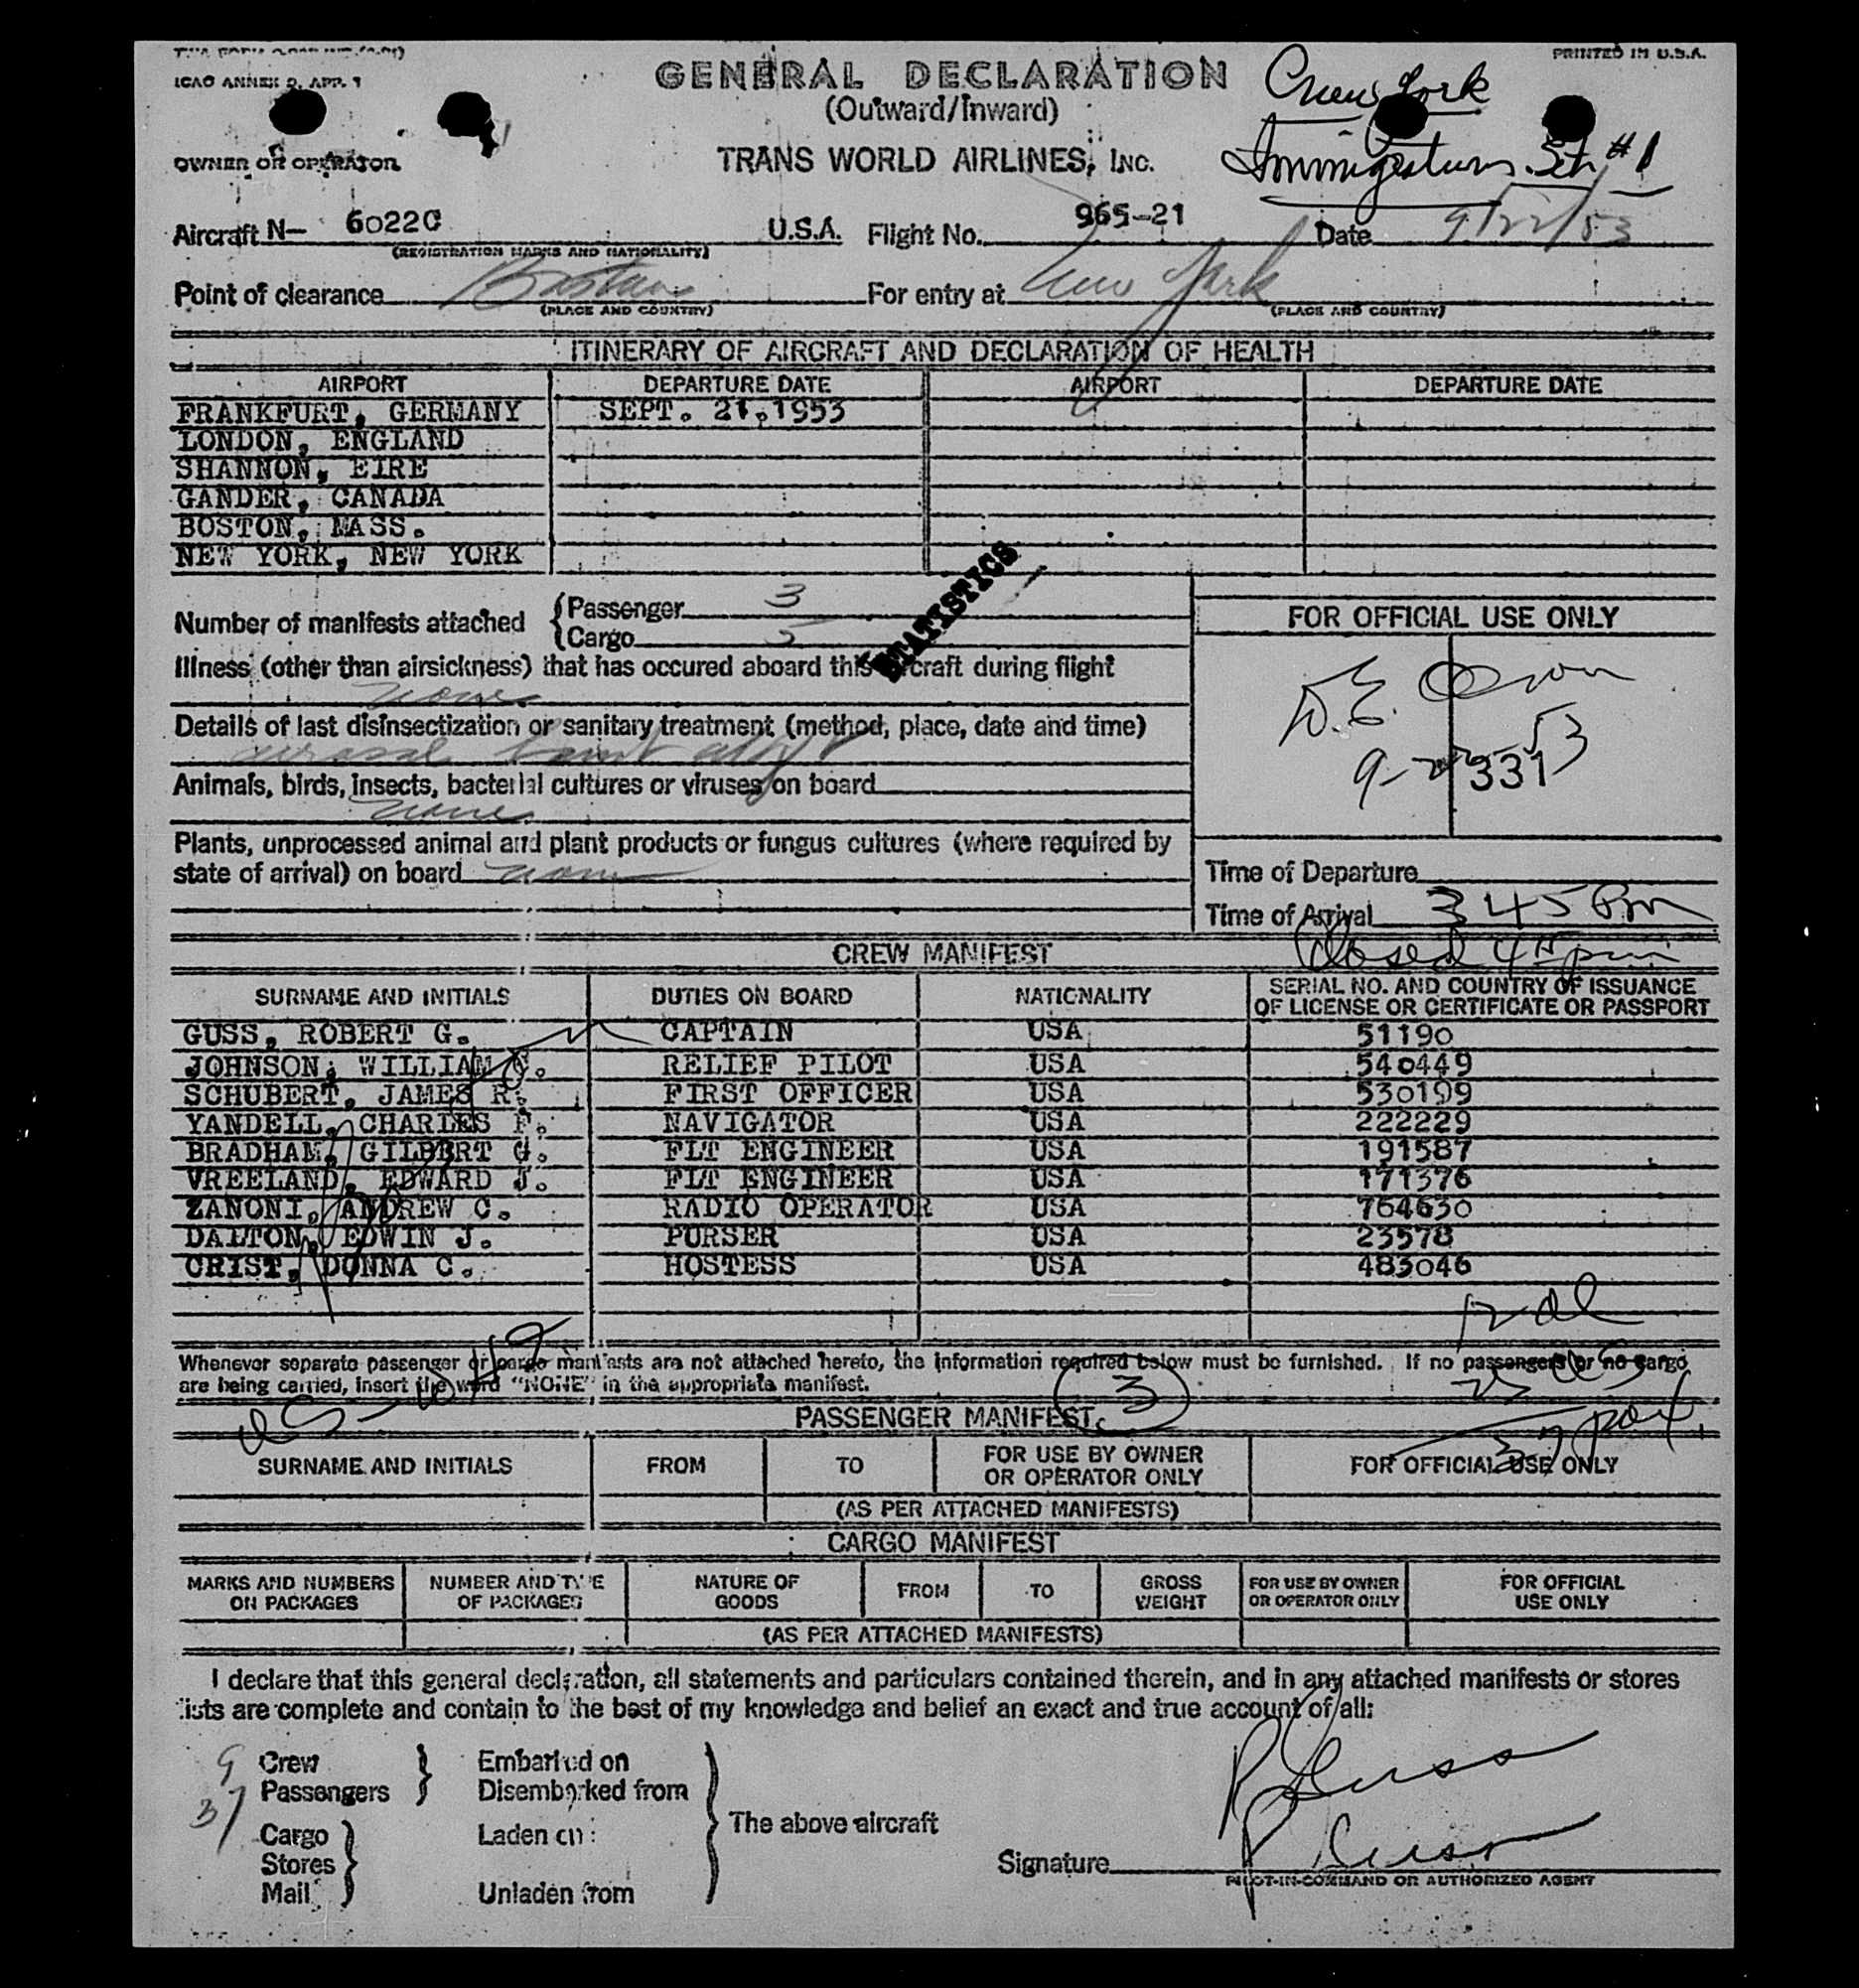 ICAO ANNEX 9, APP. 1
PRINTED IN U.S.A.
GENERAL DECLARATION
(Outward/Inward)
New York
Immigration Stn #1
OWNER OR OPERATOR
TRANS WORLD AIRLINES, INC.
Aircraft N- 6022C U.S.A. Flight No. 965-21 Date 9/22/53
(REGISTRATION MARKS AND NATIONALITY)
Point of clearance Boston For entry at New York
(PLACE AND COUNTRY) (PLACE AND COUNTRY)
ITINERARY OF AIRCRAFT AND DECLARATION OF HEALTH
AIRPORT DEPARTURE DATE AIRPORT DEPARTURE DATE
FRANKFURT, GERMANY SEPT. 21.1953
LONDON, ENGLAND
SHANNON, EIRE
GANDER, CANADA
BOSTON, MASS.
NEW YORK, NEW YORK
STATISTICS
Number of manifests attached Passenger 3
Cargo 5
FOR OFFICIAL USE ONLY
Illness (other than airsickness) that has occured aboard this aircraft during flight
none
D.E.
Details of last disinsectization or sanitary treatment (method, place, date and time)
331
Animals, birds, insects, bacterial cultures or viruses on board
none
Plants, unprocessed animal and plant products or fungus cultures (where required by
state of arrival) on board none
Time of Departure
Time of Arrival 3 45 Pm
closed 4 15 pm
CREW MANIFEST
SURNAME AND INITIALS DUTIES ON BOARD NATIONALITY SERIAL NO. AND COUNTRY OF ISSUANCE
OF LICENSE OR CERTIFICATE OR PASSPORT
GUSS, ROBERT G. CAPTAIN USA 51190
JOHNSON, WILLIAM C. RELIEF PILOT USA 540449
SCHUBERT, JAMES R. FIRST OFFICER USA 530199
YANDELL, CHARLES F. NAVIGATOR USA 222229
BRADHAM, GILBERT G. FLT ENGINEER USA 191587
VREELAND, EDWARD J. FLT ENGINEER USA 171376
ZANONI, ANDREW C. RADIO OPERATOR USA 764630
DALTON, EDWIN J. PURSER USA 23578
CRIST, DONNA C. HOSTESS USA 483046
Whenever separate passenger or cargo manifests are not attached hereto, the information required below must be furnished. If no passengers or no cargo
are being carried, insert the word "NONE" in the appropriate manifest.
3
PASSENGER MANIFEST
37 pax.
SURNAME AND INITIALS FROM TO FOR USE BY OWNER
OR OPERATOR ONLY FOR OFFICIAL USE ONLY
(AS PER ATTACHED MANIFESTS)
CARGO MANIFEST
MARKS AND NUMBERS
ON PACKAGES NUMBER AND TYPE
OF PACKAGES NATURE OF
GOODS FROM TO GROSS
WEIGHT FOR USE BY OWNER
OR OPERATOR ONLY FOR OFFICIAL
USE ONLY
(AS PER ATTACHED MANIFESTS)
I declare that this general declaration, all statements and particulars contained therein, and in any attached manifests or stores
lists are complete and contain to the best of my knowledge and belief an exact and true account of all:
9 Crew Embarked on
37 Passengers Disembarked from
The above aircraft
Cargo Laden on:
Stores
Mail Unladen from
R Guss
R Guss
Signature
PILOT-IN-COMMAND OR AUTHORIZED AGENT